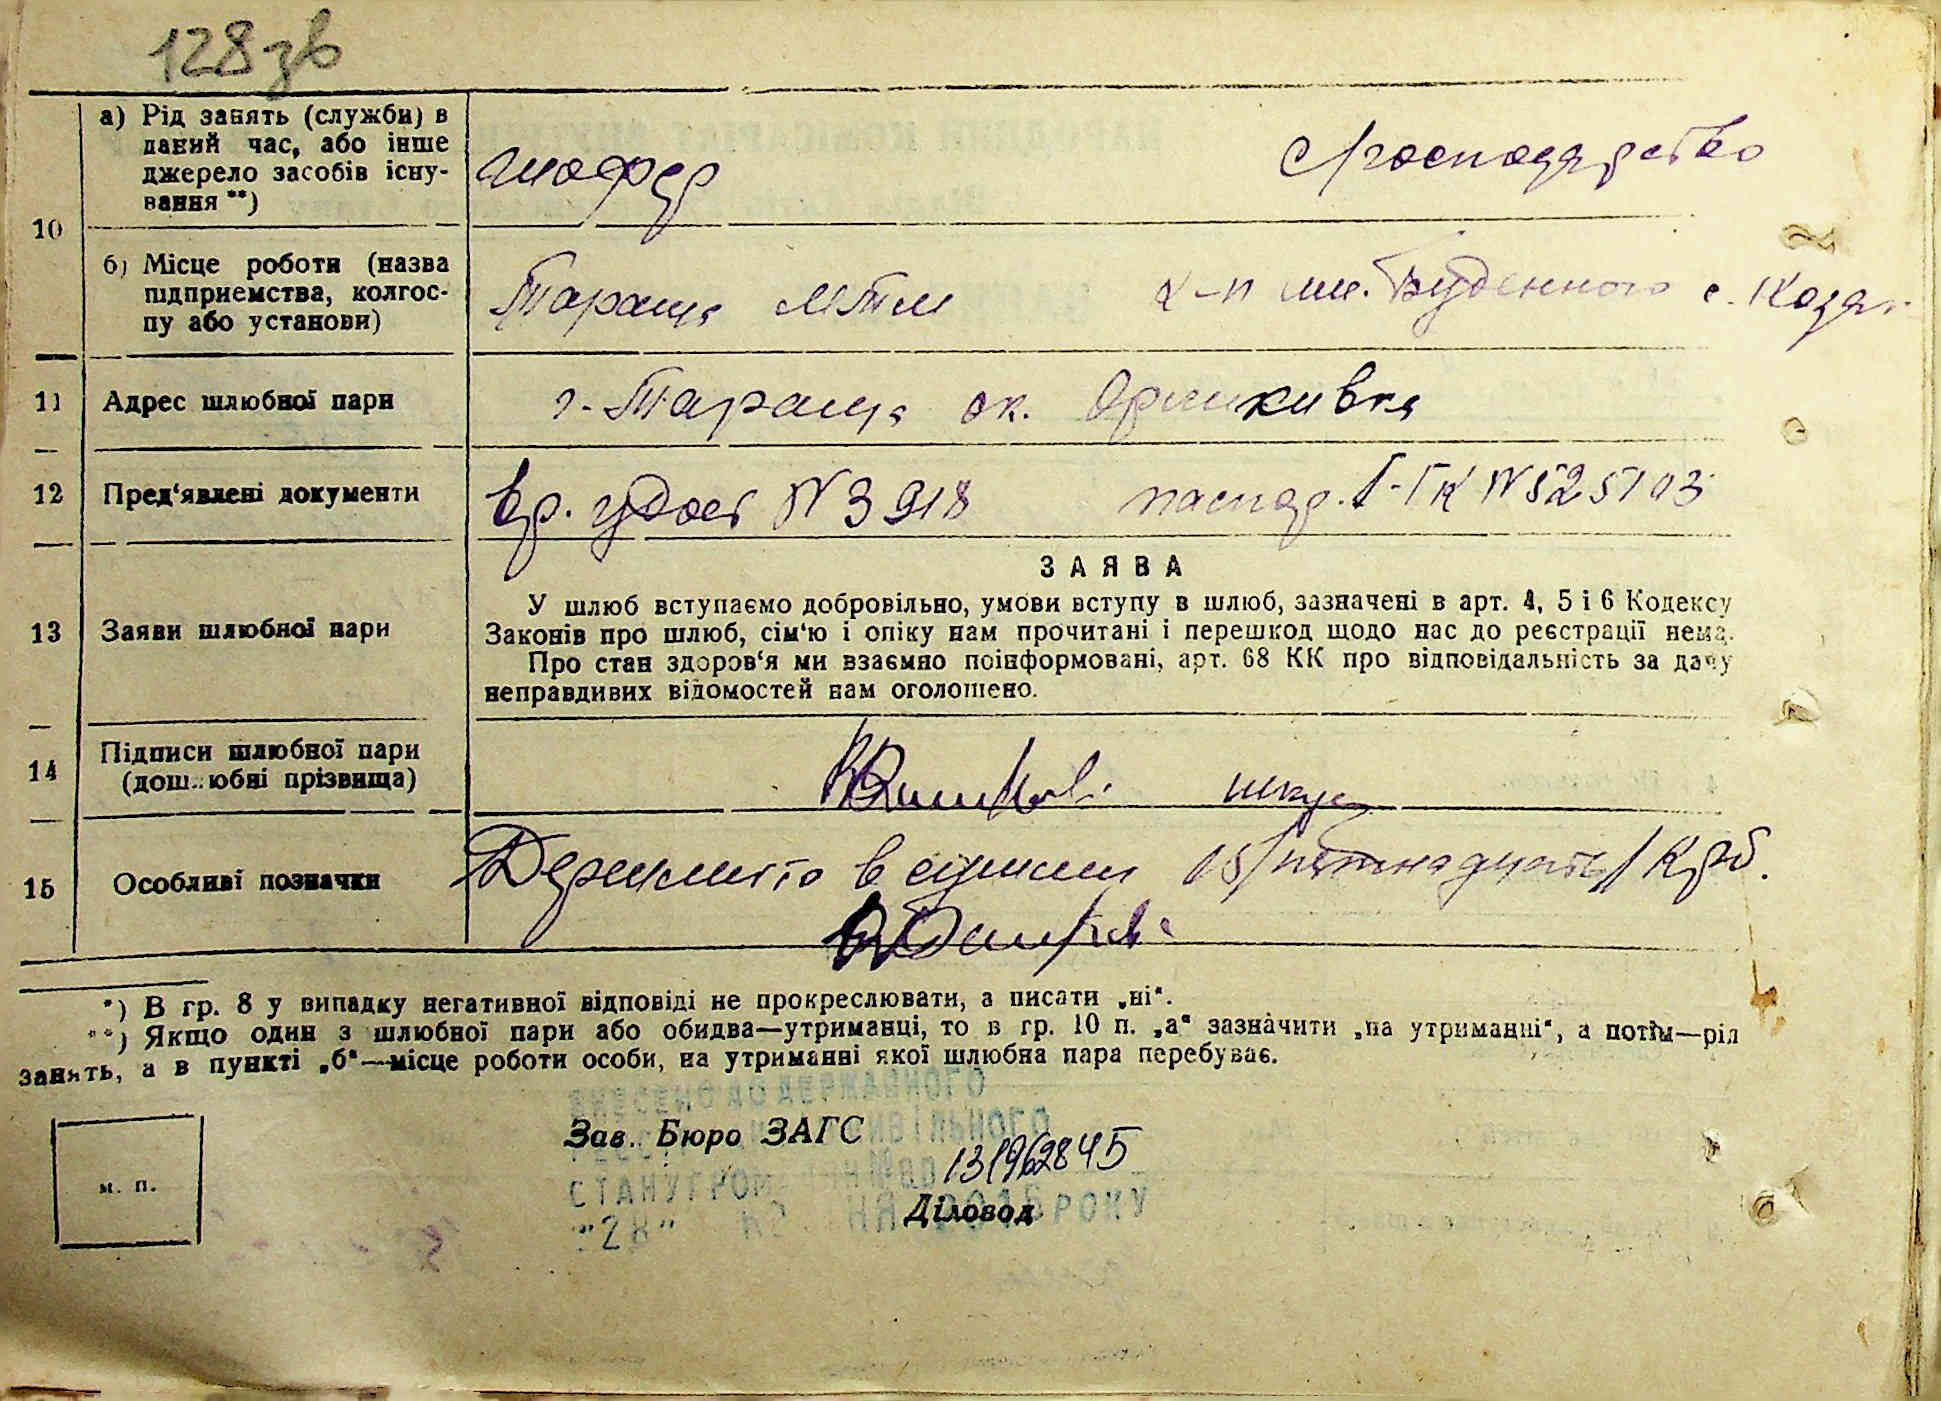 128 зв
а) Рід занять (служби) в
даний час, або інше
джерело засобів існу-
вання **)
шофер
с/господарство
10
б) Місце роботи (назва
підприємства, колгос-
пу або установи)
Тараща МТМ
к-п им. Буденного с.
11
Адрес шлюбної пари
г. Тараща ок.
12
Пред'явлені документи
вр. удост N 3918
паспор. I-ГК N 525103
13
Заяви шлюбної пари
ЗАЯВА
У шлюб вступаємо добровільно, умови вступу в шлюб, зазначені в арт. 4, 5 і 6 Кодексу
Законів про шлюб, сім'ю і опіку нам прочитані і перешкод щодо нас до реєстрації нема.
Про стан здоров'я ми взаємно поінформовані, арт. 68 КК про відповідальність за дачу
неправдивих відомостей нам оголошено.
14
Підписи шлюбної пари
(дошлюбні прізвища)
15
Особливі позначки
Держмито в сумми 15/пятнадцять/ крб.
*) В гр. 8 у випадку негативної відповіді не прокреслювати, а писати „ні“.
**) Якщо один з шлюбної пари або обидва—утриманці, то в гр. 10 п. „а“ зазначити „на утриманні“, а потім—рід
занять, а в пункті „б“—місце роботи особи, на утриманні якої шлюбна пара перебуває.
ВНЕСЕНО ДО ДЕРЖАВНОГО
Зав. Бюро ЗАГС
131962845
"28"
РОКУ
Діловод
м. п.